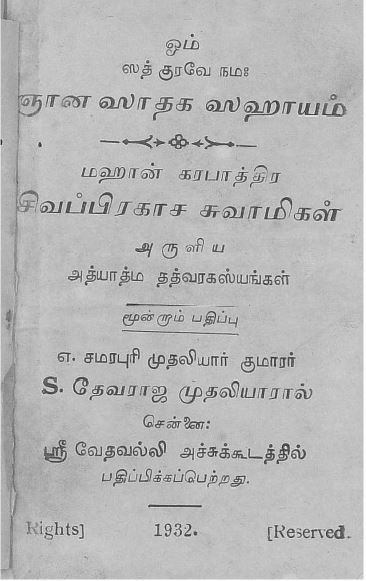 ஓம்
ஸத் குரவே நமஃ
ஞான ஸாதக ஸஹாயம்
மஹான் கரபாத்திர
சிவப்பிரகாச சுவாமிகள்
அருளிய
அத்யாத்ம தத்வரகஸ்யங்கள்
மூன்றும் பதிப்பு
எ. சமரபுரி முதலியார் குமாரர்
S. தேவராஜ முதலியாரால்
சென்னை:
ஸ்ரீ வேதவல்லி அச்சுக்கூடத்தில்
பதிப்பிக்கப்பெற்றது.
Rights] 1932. [Reserved.